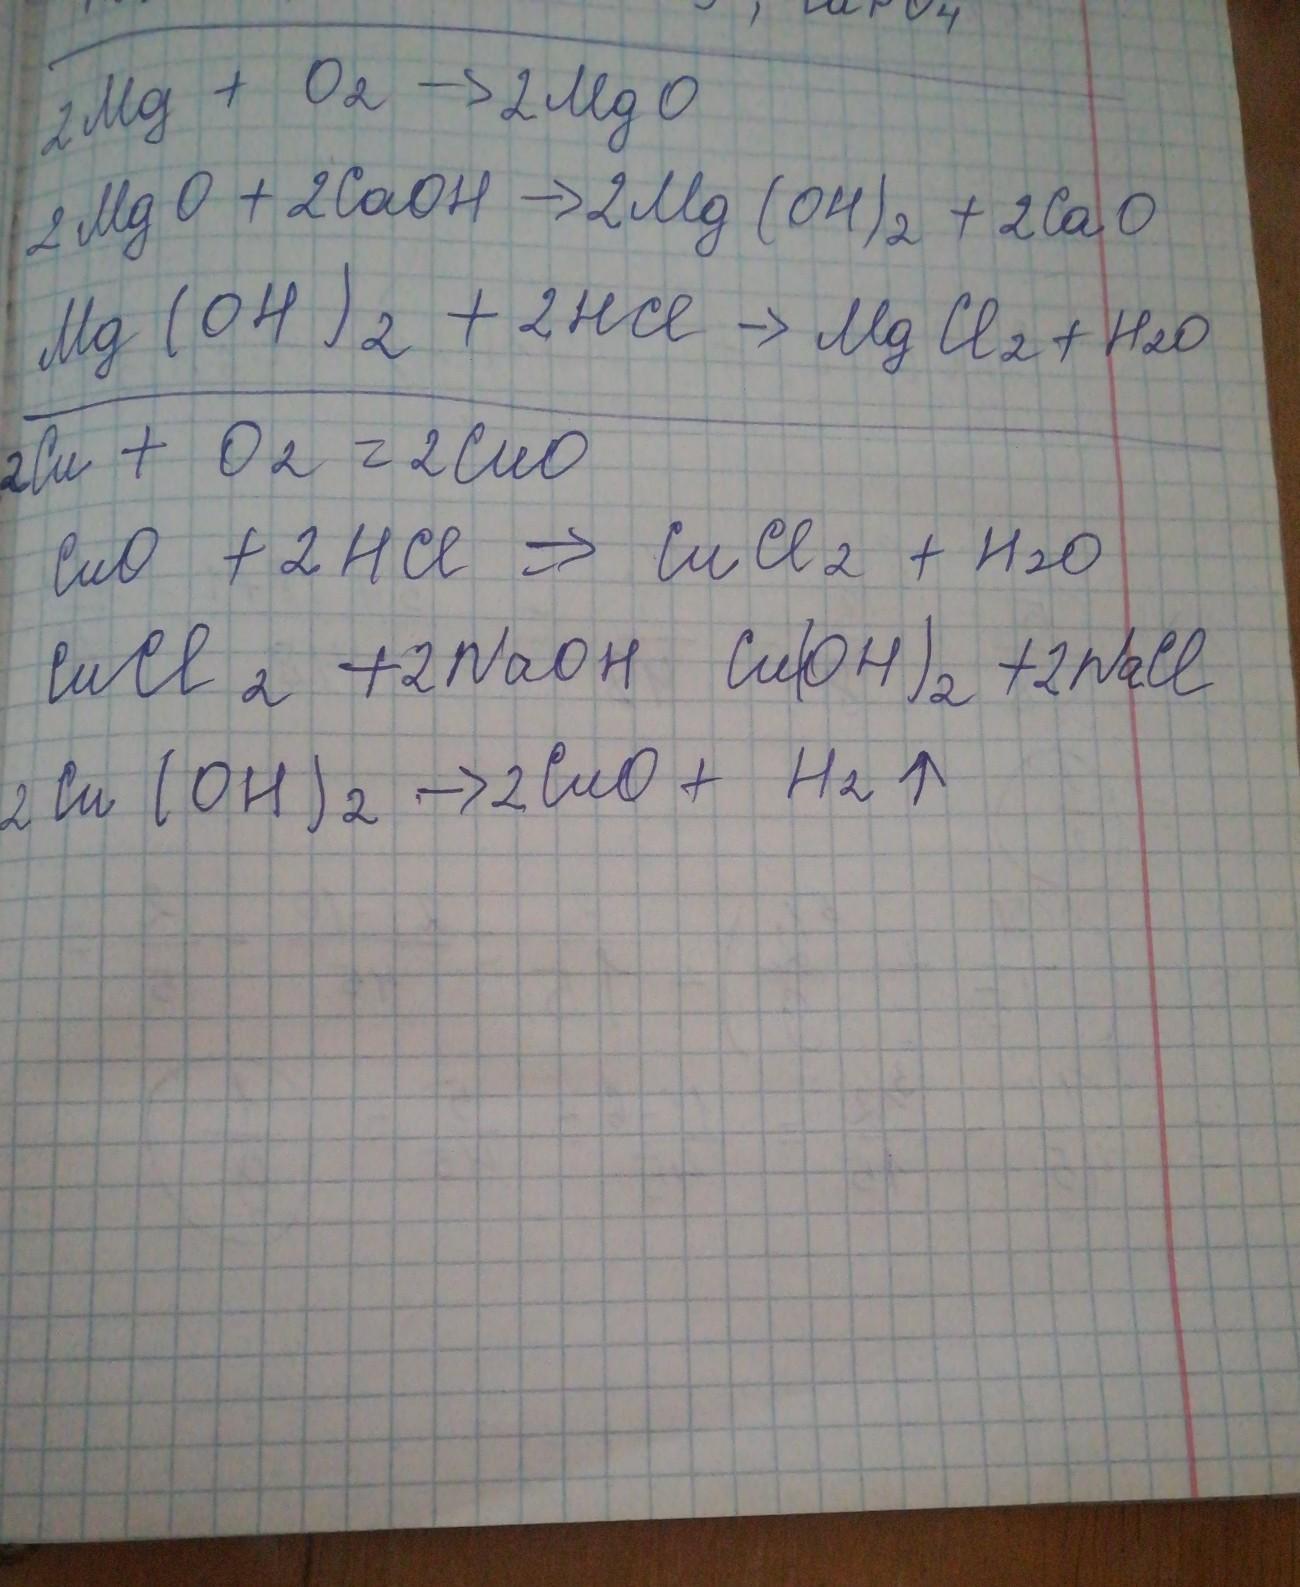 CaPO4
2Mg + O2 → 2MgO
2MgO + 2CaOH → 2Mg(OH)2 + 2CaO
Mg(OH)2 + 2HCl → MgCl2 + H2O
2Cu + O2 = 2CuO
CuO + 2HCl ⇒ CuCl2 + H2O
CuCl2 + 2NaOH Cu(OH)2 + 2NaCl
2Cu(OH)2 → 2CuO + H2↑